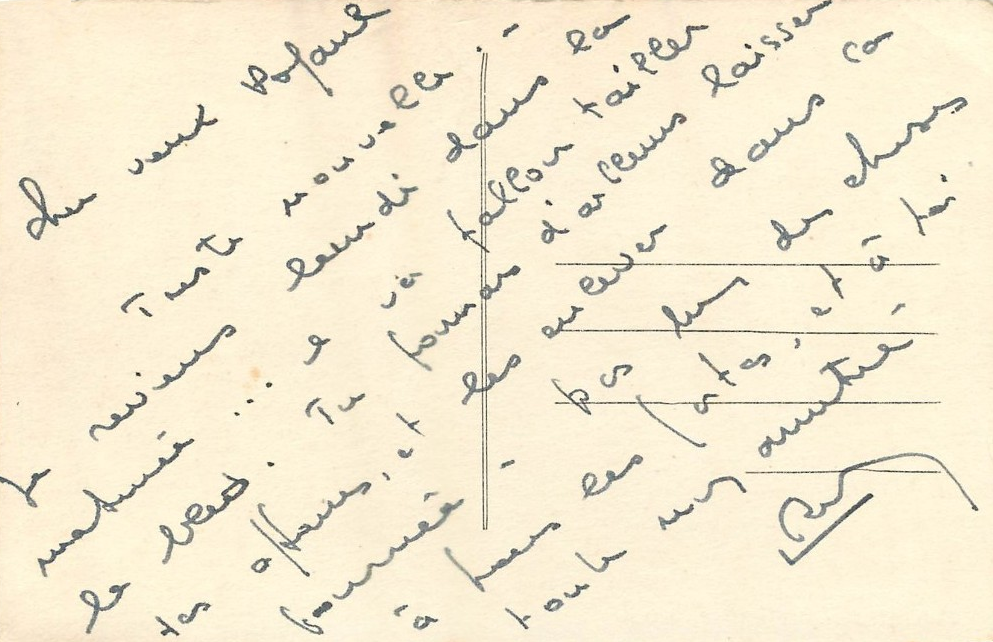 Cher vieux
Triste nouvelle
Je reviens lundi dans la
matinée ... e va falloir tailler
le bled. Tu pourras d'ailleurs laisser
tes affaires, et les enlever dans la
journée - de choses
à tous les potes, et à toi
toute mon amitié